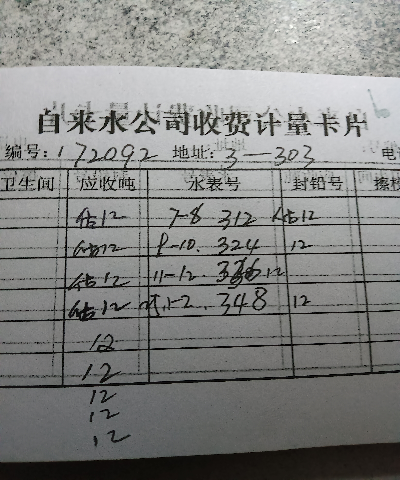 自来水公司收费计量卡片
编号:172092 地址:3—303 电
卫生间 应收吨 水表号 封铅号 擦
估12 7-8 312 估12
估12 9-10. 324 12
估12 11-12. 336 12
估12 1-2. 348 12
12
12
12
12
12